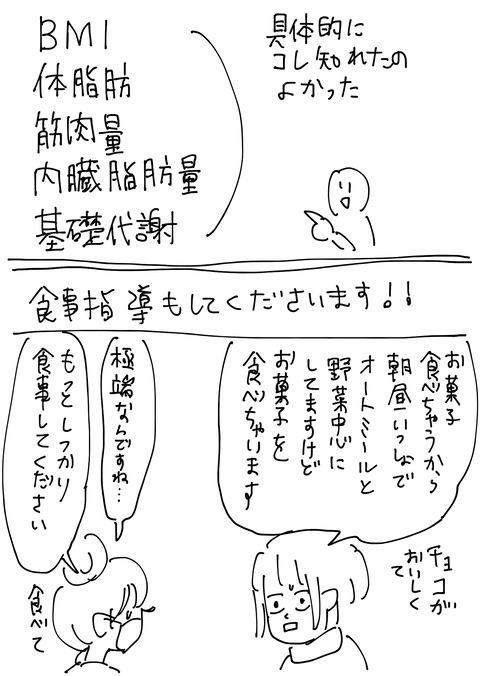 BMI
体脂肪
筋肉量
内臓脂肪量
基礎代謝
具体的に
コレ知れたの
よかった
食事指導もしてくださいます!!
お菓子
食べちゃうから
朝昼いっしょで
オートミールと
野菜中心に
してますけど
お菓子を
食べちゃいます
チョコが
おいしく
て
極端なんですね…
もっとしっかり
食事してください
食べて